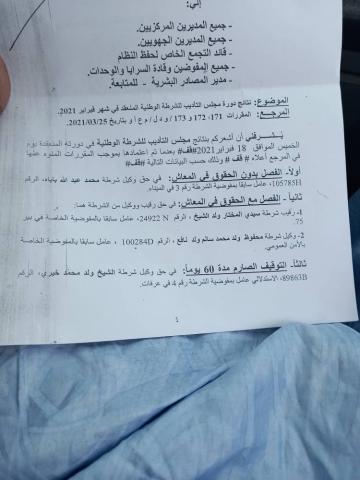 إلي:
- جميع المديرين المركزيين.
- جميع المديرين الجهويين.
- قائد التجمع الخاص لحفظ النظام
- جميع المفوضين وقادة السرايا والوحدات.
- مدير المصادر البشرية - للمتابعة.
الموضوع: نتائج دورة مجلس التأديب للشرطة الوطنية المنعقد في شهر فبراير 2021.
المرجع: المقررات 171، 172 و 173 / و د ل / م ع أ / بتاريخ 2021/03/25
يشرفني أن أشعركم بنتائج مجلس التأديب للشرطة الوطنية في دورته المنعقدة يوم
الخميس الموافق 18 فبراير 2021#قف# بعدما تم اعتمادها بموجب المقررات المنوه عنها
في المرجع أعلاه #قف# وذلك حسب البيانات التالية #قف#
أولا- الفصل بدون الحقوق في المعاش: في حق وكيل شرطة محمد عبد الله ، الرقم
105785H، عامل سابقا بمفوضية الشرطة رقم 3 في الميناء.
ثانيا- الفصل مع الحقوق في المعاش: في حق رقيب ووكيل من الشرطة هما:
1- رقيب شرطة سيدي المختار ولد الشيخ، الرقم 24922 N، عامل سابقا بالمفوضية الخاصة في بير
75.
2- وكيل شرطة محفوظ ولد محمد سالم ولد نافع، الرقم 100284D، عامل سابقا بالمفوضية الخاصة
بالأمن العمومي.
ثالثا- التوقيف الصارم مدة 60 يوما: في حق وكيل شرطة الشيخ ولد محمد خيري، الرقم
89863B، الاستدلالي عامل بمفوضية الشرطة رقم 4 في عرفات.